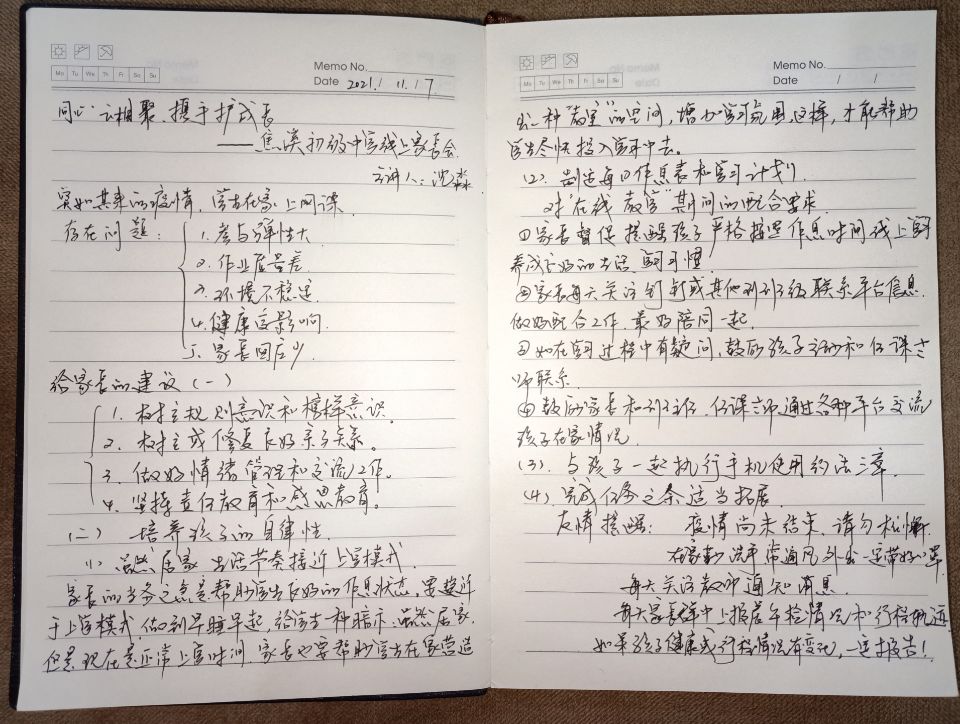 Memo No.
Mo Tu We Th Fr Sa Su
Date 2021 / 11 / 7
同心云相聚、携手护成长
——焦溪初级中学线上家长会
主讲人：沈淼
突如其来的疫情，学生在家上网课
存在问题：
1. 参与弹性大
2. 作业质量差
3. 环境不稳定
4. 健康受影响
5. 家长回应少
给家长的建议（一）
1. 树立规则意识和榜样意识
2. 树立或修复良好亲子关系。
3. 做好情绪管理和交流工作。
4. 坚持责任教育和感恩教育。
（二） 培养孩子的自律性
（1） 虽然居家 生活节奏接近上学模式
家长的当务之急是帮助学生良好的作息状态，要接近
于上学模式，做到早睡早起，给学生一种暗示：虽然居家，
但是现在是正常上学时间，家长也要帮助学生在家营造
Memo No.
Mo Tu We Th Fr Sa Su
Date / /
出一种"教室"的空间，增加学习氛围，这样，才能帮助
学生尽快投入学习中去。
（2）. 制定每日作息表和学习计划
对"在线教学"期间的配合要求
①家长督促提醒孩子严格按照作息时间线上学习
养成良好的生活、学习习惯
②家长每天关注钉钉或其他班级联系平台信息，
做好配合工作，最好陪同一起.
③如在学习过程中有疑问，鼓励孩子主动和任课老
师联系.
④鼓励家长和班主任、任课老师通过各种平台交流
孩子在家情况.
（3）. 与孩子一起执行手机使用约法三章
（4）. 完成任务之余适当拓展
友情提醒： 疫情尚未结束，请勿松懈
在家勤洗手常通风 外出一定带好口罩
每天关注教师通知消息
每天家长群中上报居 情况和行程轨迹
如果孩子健康或行程情况有变化，一定报告！